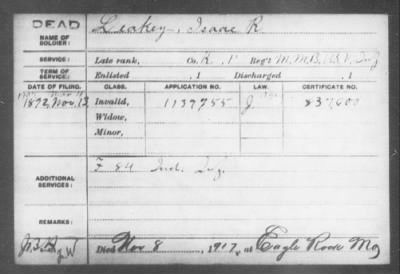 DEAD
NAME OF SOLDIER: Leakey, Isaac R.
SERVICE: Late rank, Co. K, 1" Reg't M.M.B., U.S.V. Inf
TERM OF SERVICE: Enlisted , 1 Discharged , 1
DATE OF FILING. CLASS. APPLICATION NO. LAW. CERTIFICATE NO.
1892, Nov. 12 Invalid, 1139755 J 837600
Widow,
Minor,
ADDITIONAL SERVICES: F 54 Ind. Inf.
REMARKS:
Died Nov 8, 1917, at Eagle Rock Mo